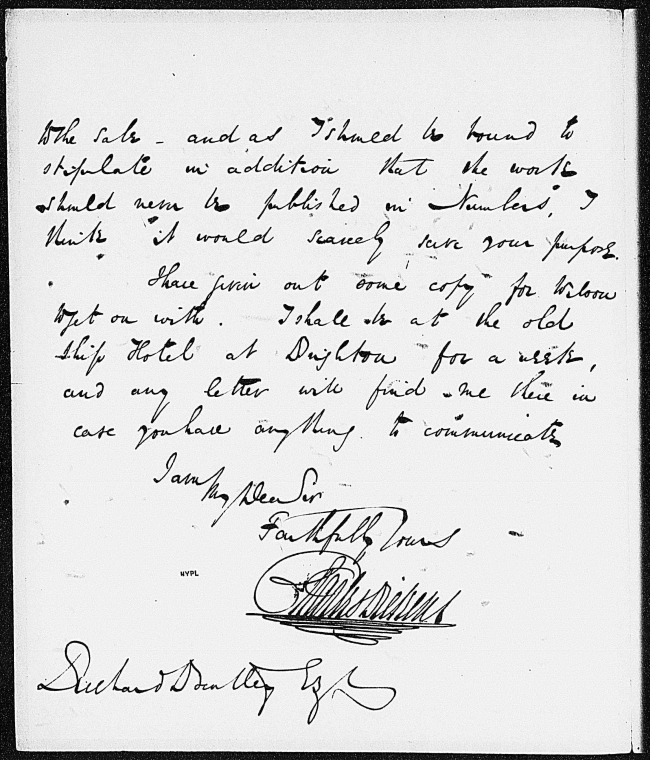 to the sale – and as I should be bound to
stipulate in addition that the work
should never be published in Numbers, I
think it would scarcely serve your purpose.
I have given out some copy for Wilson
to get on with. I shall be at the old
Ship Hotel at Brighton for a week,
and any letter will find me there in
case you have anything to communicate
I am
My Dear Sir
Faithfully Yours
NYPL
Charles Dickens
Richard Bentley Esqr